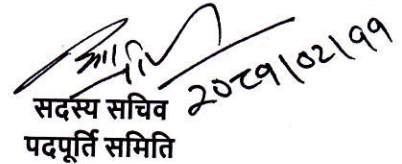 २०८१।०२।११
सदस्य सचिव
पदपूर्ति समिति